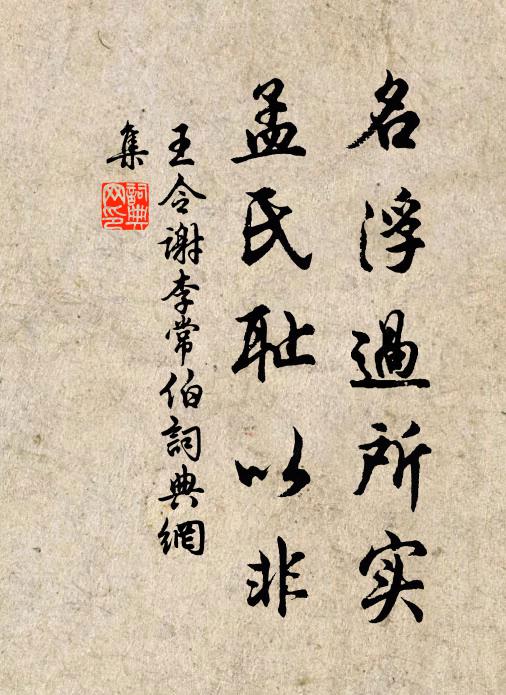 名浮過所实
孟氏耻以非
王令谢李常伯詞典網
集
詞典网印